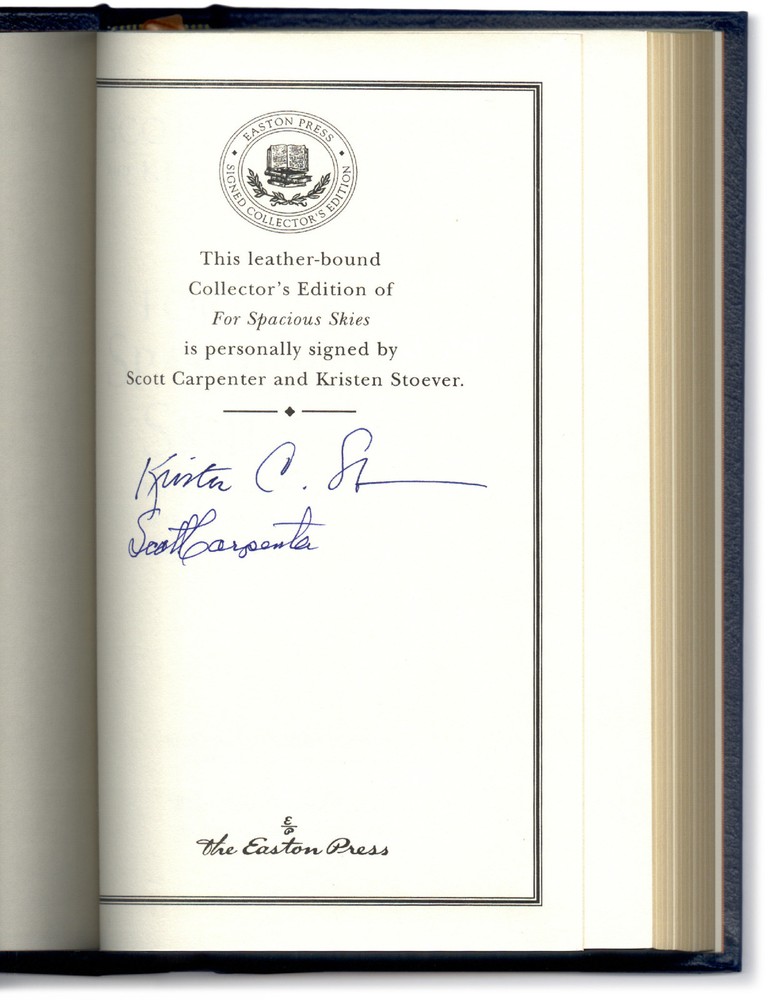 EASTON PRESS
SIGNED COLLECTOR'S EDITION
This leather-bound
Collector's Edition of
For Spacious Skies
is personally signed by
Scott Carpenter and Kristen Stoever.
Kristen C. St
Scott Carpenter
E
P
The Easton Press